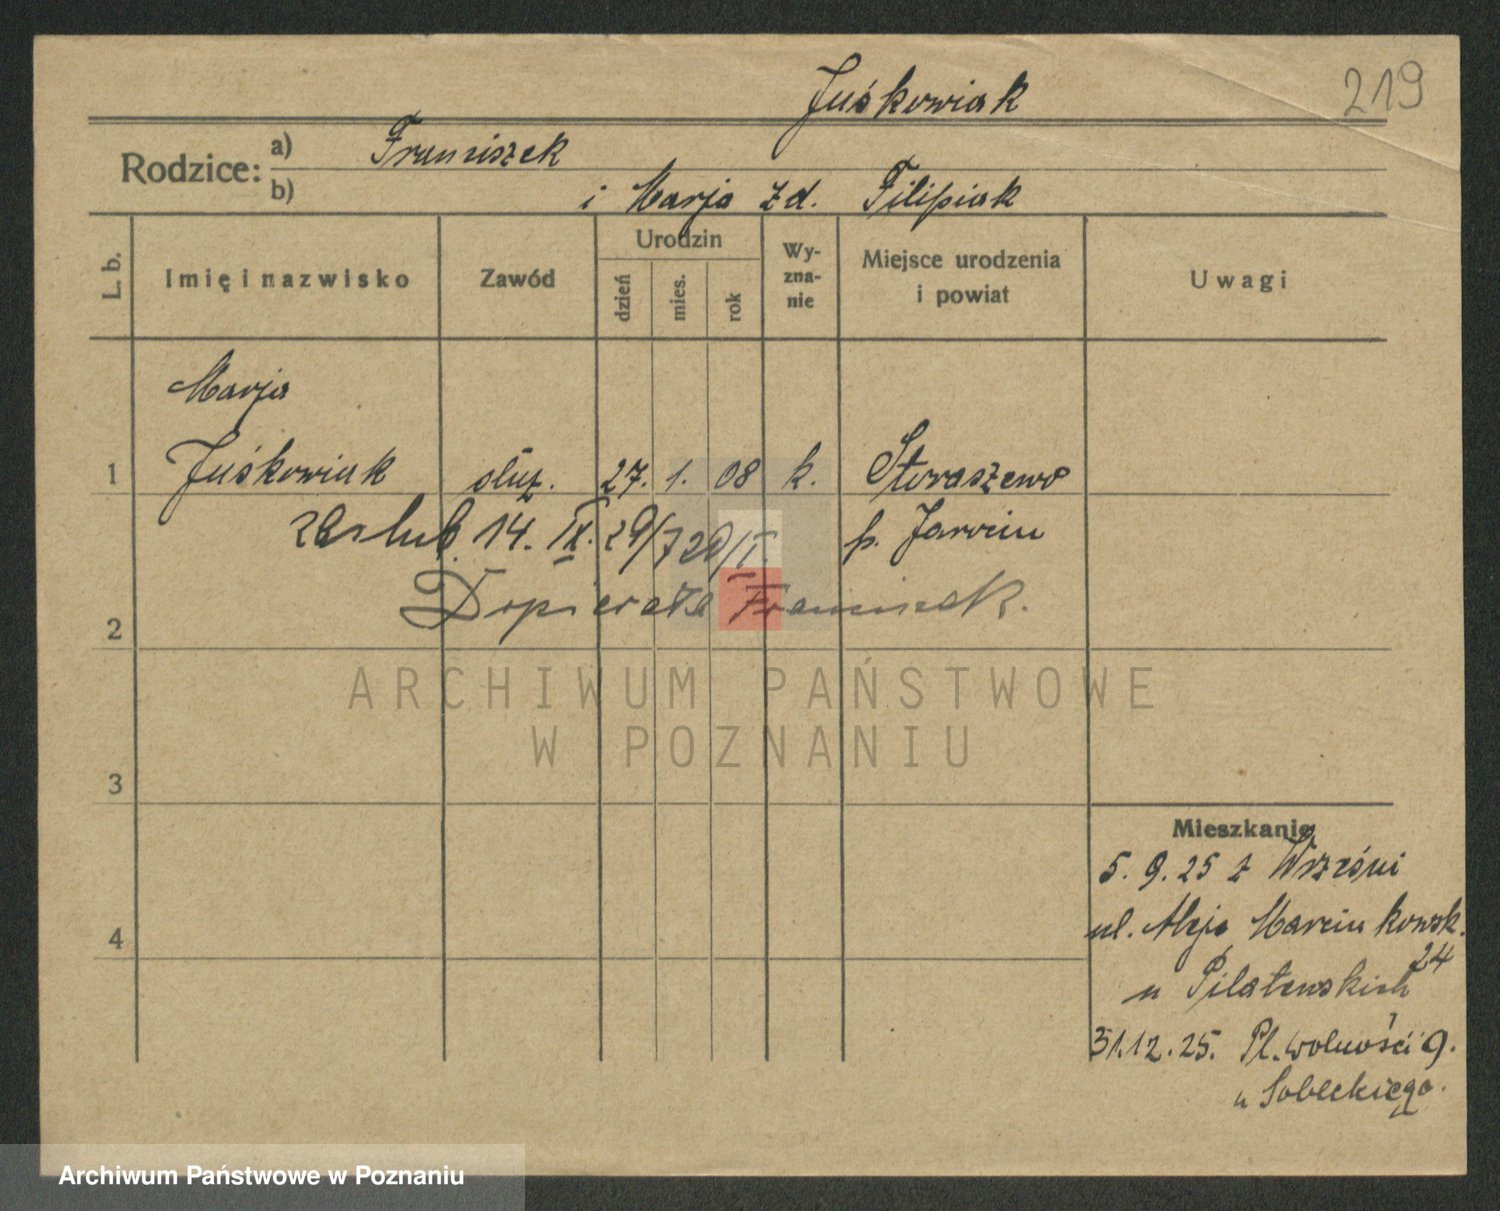 Juśkowiak
219
Rodzice:
a) Franciszek
b) i Marja z d. Filipiak
L. b.
Imię i nazwisko
Zawód
Urodzin
dzień
mies.
rok
Wy-
zna-
nie
Miejsce urodzenia
i powiat
Uwagi
Marja
1 Juśkowiak służ. 27. 1. 08 k.
zaślub. 14. IX. 29/720/II.
p. Jarocin
2 Dopierała Franciszek.
ARCHIWUM PAŃSTWOWE
W POZNANIU
3
Mieszkanie
5. 9. 25 z Wrześni
ul. Aleje Marcinkowsk.
24
4
u Pilateuskich
31.12.25. Pl. wolności 9.
u Sobeckiego.
Archiwum Państwowe w Poznaniu